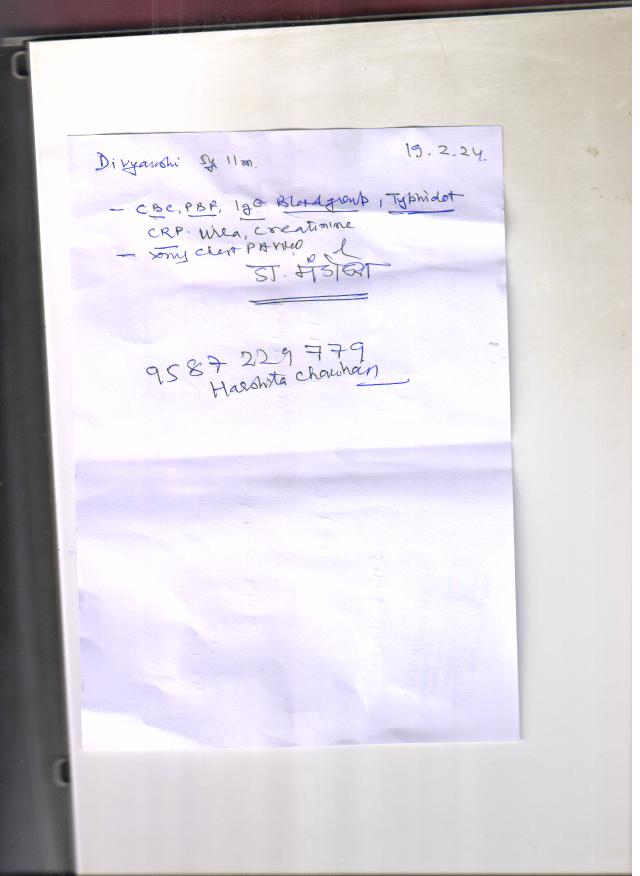 Divyanshi 11m. 19.2.24.
- CBC, PBF, IgE Blood group, Typhidot
CRP. Urea, Creatinine
- Xray Chest PA view
डा. मंडोवरा
9587 229 779
Harshita Chauhan